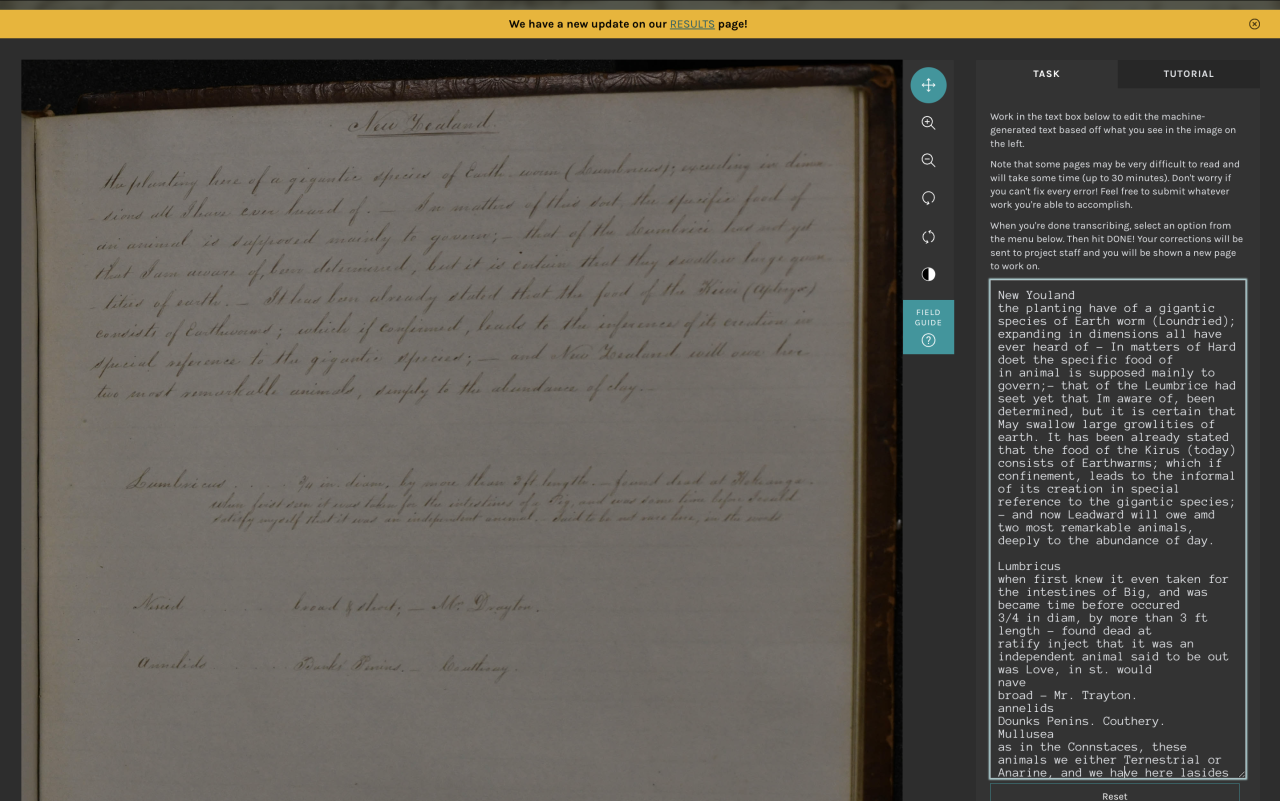 We have a new update on our RESULTS page!
New Zealand.
the planting here of a gigantic species of Earth-worm (Lumbricus); exceeding in dimen-
-sions all I have ever heard of. — In matters of this sort, the specific food of
an animal is supposed mainly to govern; — that of the Lumbrici has not yet
that I am aware of, been determined, but it is certain that they swallow large quan-
-tities of earth. — It has been already stated that the food of the Kiwi (Apteryx)
consists of Earthworms; which if confirmed, leads to the inference of its creation in
special reference to the gigantic species; — and New Zealand will owe her
two most remarkable animals, simply to the abundance of clay. —
Lumbricus . . . . 3/4 in. diam. by more than 2 ft. length. — found dead at
when first seen it was taken for the intestines of a Pig, and was some time before I could
satisfy myself that it was an independent animal. — Said to be not rare here, in the woods
Nereid . . . . broad & short; — Mr. Drayton.
Annelids . . . . Penins. — Couthouy.
FIELD
GUIDE
TASK
TUTORIAL
Work in the text box below to edit the machine-
generated text based off what you see in the image on
the left.
Note that some pages may be very difficult to read and
will take some time (up to 30 minutes). Don't worry if
you can't fix every error! Feel free to submit whatever
work you're able to accomplish.
When you're done transcribing, select an option from
the menu below. Then hit DONE! Your corrections will be
sent to project staff and you will be shown a new page
to work on.
New Youland
the planting have of a gigantic
species of Earth worm (Loundried);
expanding in dimensions all have
ever heard of – In matters of Hard
doet the specific food of
in animal is supposed mainly to
govern;– that of the Leumbrice had
seet yet that Im aware of, been
determined, but it is certain that
May swallow large growlities of
earth. It has been already stated
that the food of the Kirus (today)
consists of Earthwarms; which if
confinement, leads to the informal
of its creation in special
reference to the gigantic species;
– and now Leadward will owe amd
two most remarkable animals,
deeply to the abundance of day.
Lumbricus
when first knew it even taken for
the intestines of Big, and was
became time before occured
3/4 in diam, by more than 3 ft
length – found dead at
ratify inject that it was an
independent animal said to be out
was Love, in st. would
nave
broad – Mr. Trayton.
annelids
Dounks Penins. Couthery.
Mullusea
as in the Connstaces, these
animals we either Ternestrial or
Anarine, and we have here lasides
Reset